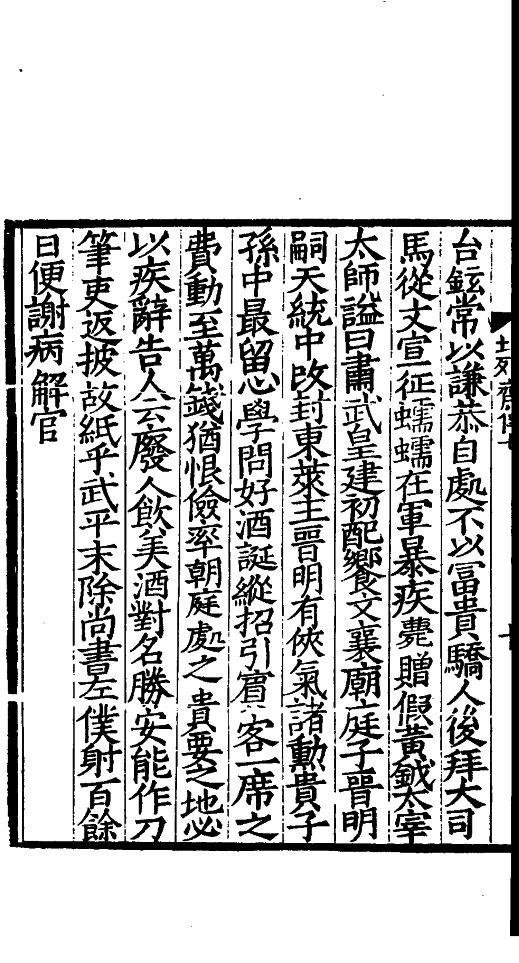 台鉉常以謙恭自處不以富貴驕人後拜大司
馬從文宣征蠕蠕在軍暴疾薨贈假黃鉞太宰
太師謚曰肅武皇建初配饗文襄廟庭子晉明
嗣天統中改封東萊王晉明有俠氣諸勳貴子
孫中最留心學問好酒誕縱招引賓客一席之
費動至萬錢猶恨儉率朝庭處之貴要之地必
以疾辭告人云廢人飲美酒對名勝安能作刀
筆吏返披故紙乎武平末除尚書左僕射百餘
日便謝病解官